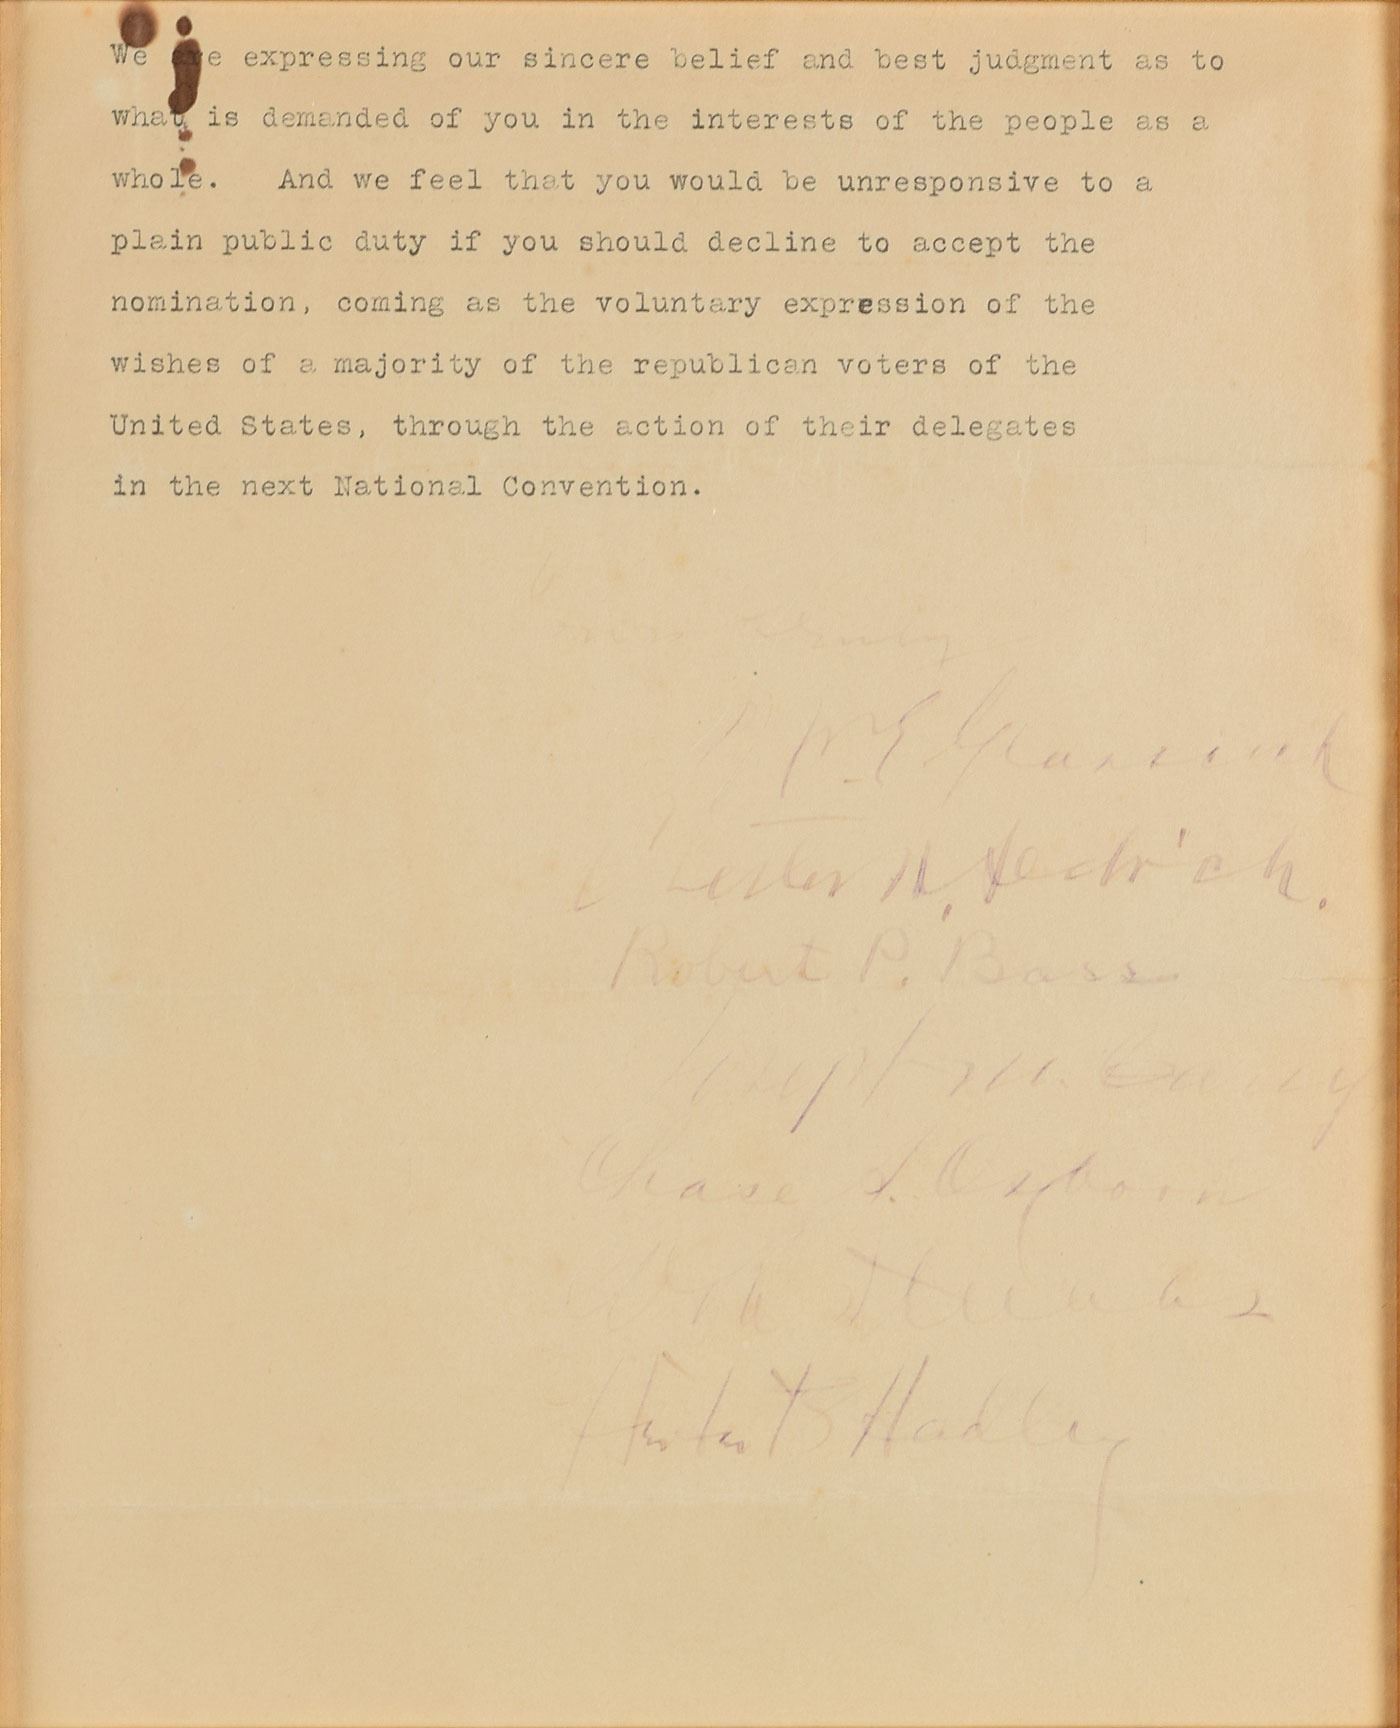 We are expressing our sincere belief and best judgment as to
what is demanded of you in the interests of the people as a
whole. And we feel that you would be unresponsive to a
plain public duty if you should decline to accept the
nomination, coming as the voluntary expression of the
wishes of a majority of the republican voters of the
United States, through the action of their delegates
in the next National Convention.
W. E. Glasscock
Chester H. Aldrich.
Robert P. Bass
Joseph M. Carey
Chase S. Osborn
W R Stubbs
Herbert S Hadley